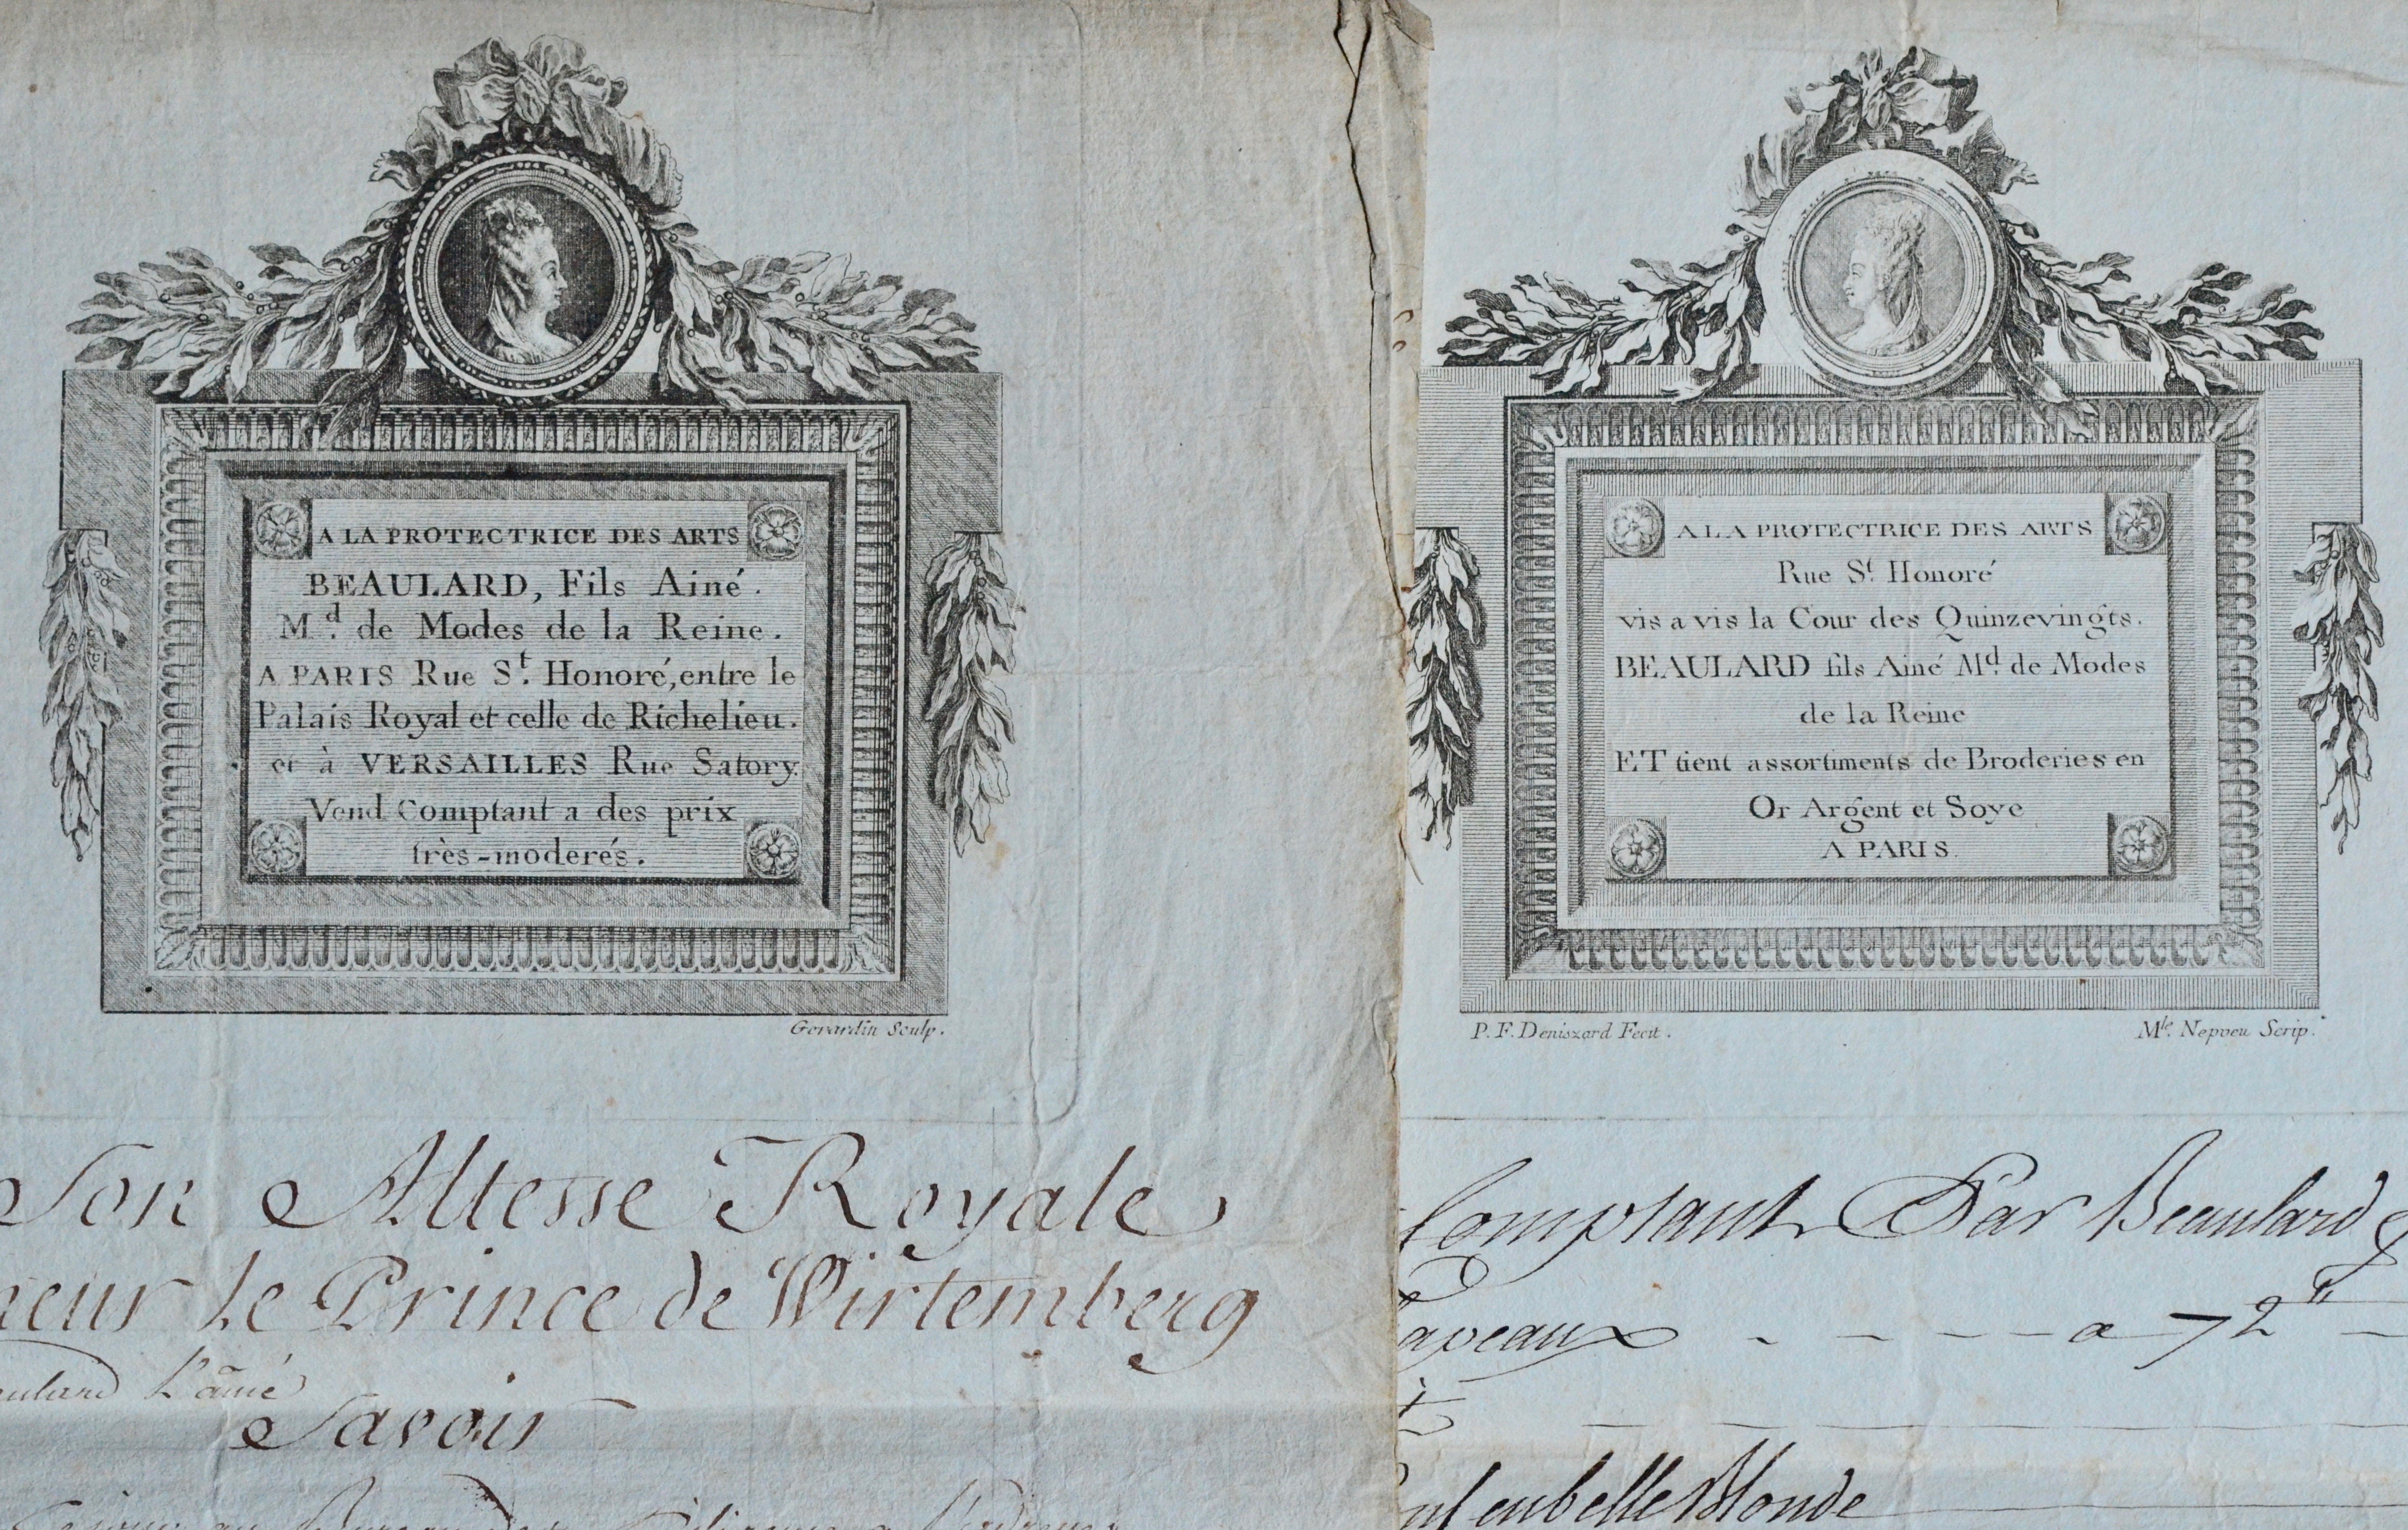 A LA PROTECTRICE DES ARTS
BEAULARD, Fils Ainé.
M.d de Modes de la Reine.
A PARIS Rue S.t Honoré, entre le
Palais Royal et celle de Richelieu.
et à VERSAILLES Rue Satory.
Vend Comptant a des prix
très-moderés.
Gerardin Sculp.
Son Altesse Royale
neur Le Prince de Wirtemberg
aulard L'ainé
Savoir
A LA PROTECTRICE DES ARTS
Rue S.t Honoré
vis a vis la Cour des Quinzevingts.
BEAULARD fils Ainé M.d de Modes
de la Reine
ET tient assortiments de Broderies en
Or Argent et Soye
A PARIS.
P. F. Deniszard Fecit.
M.le Nepveu Scrip.
Comptant Par Beaulard
apeaux - - - - a 72"
en belle Blonde